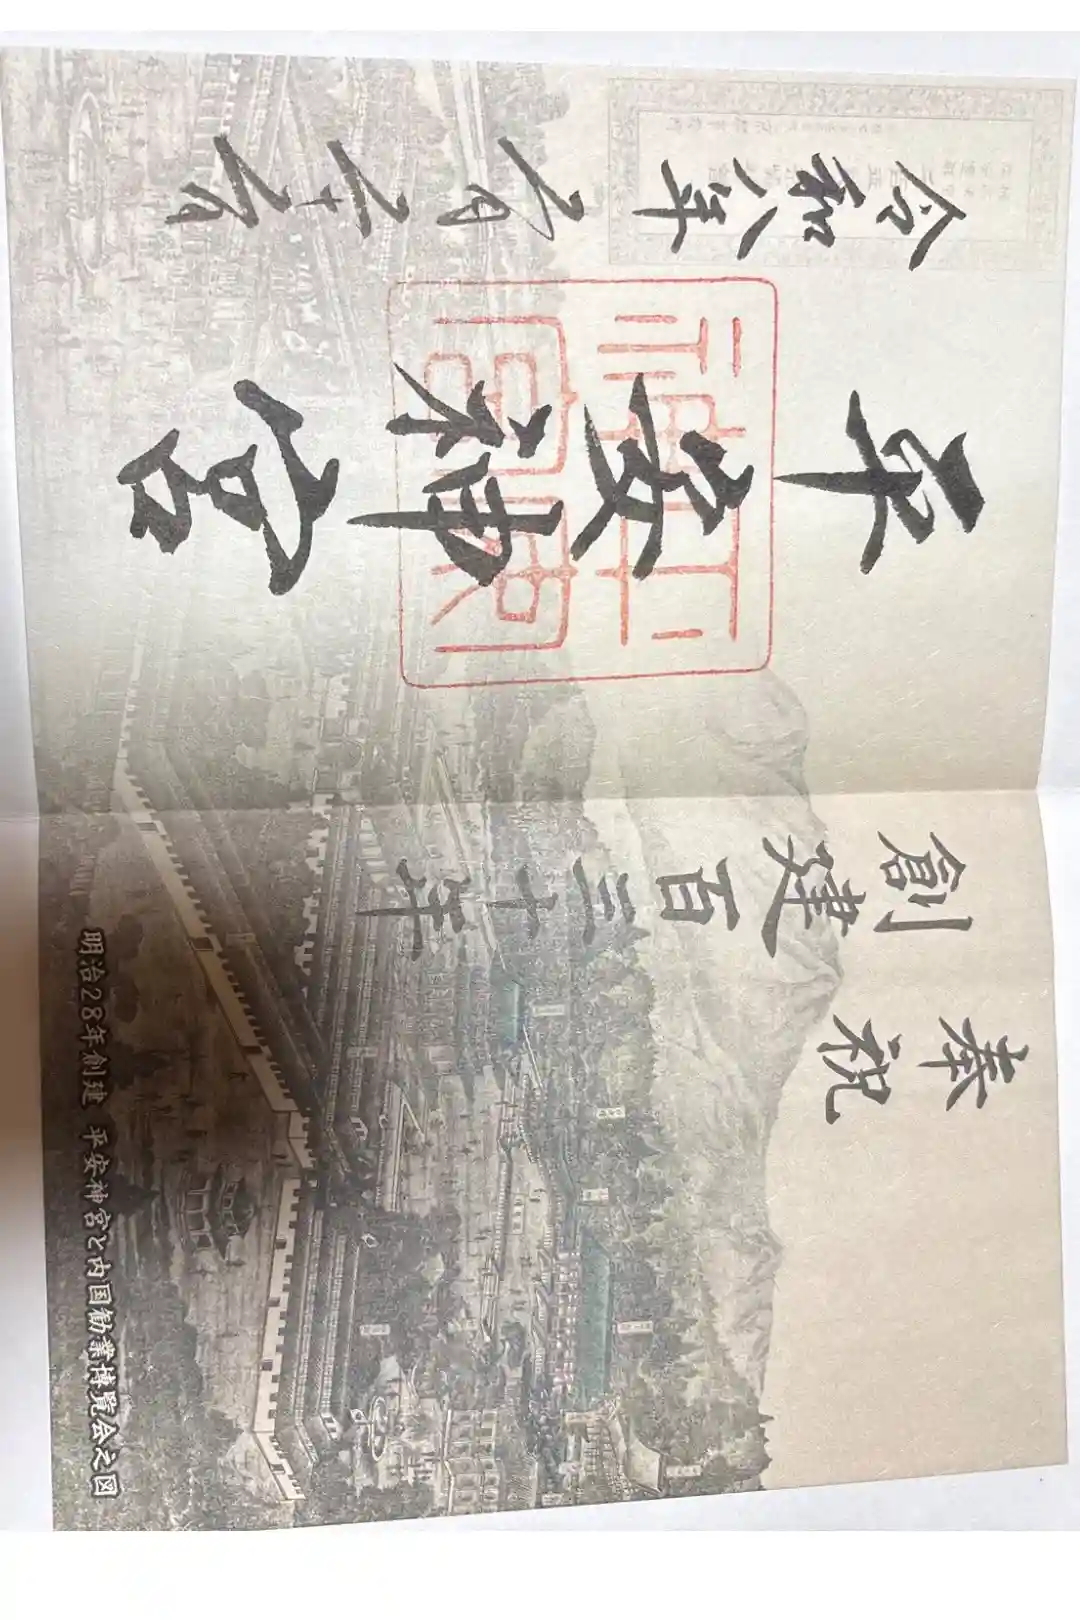 奉祝
創建百三十年
平安神宮
令和八年 六月二十六日
明治28年創建 平安神宮と内国勧業博覧会之図